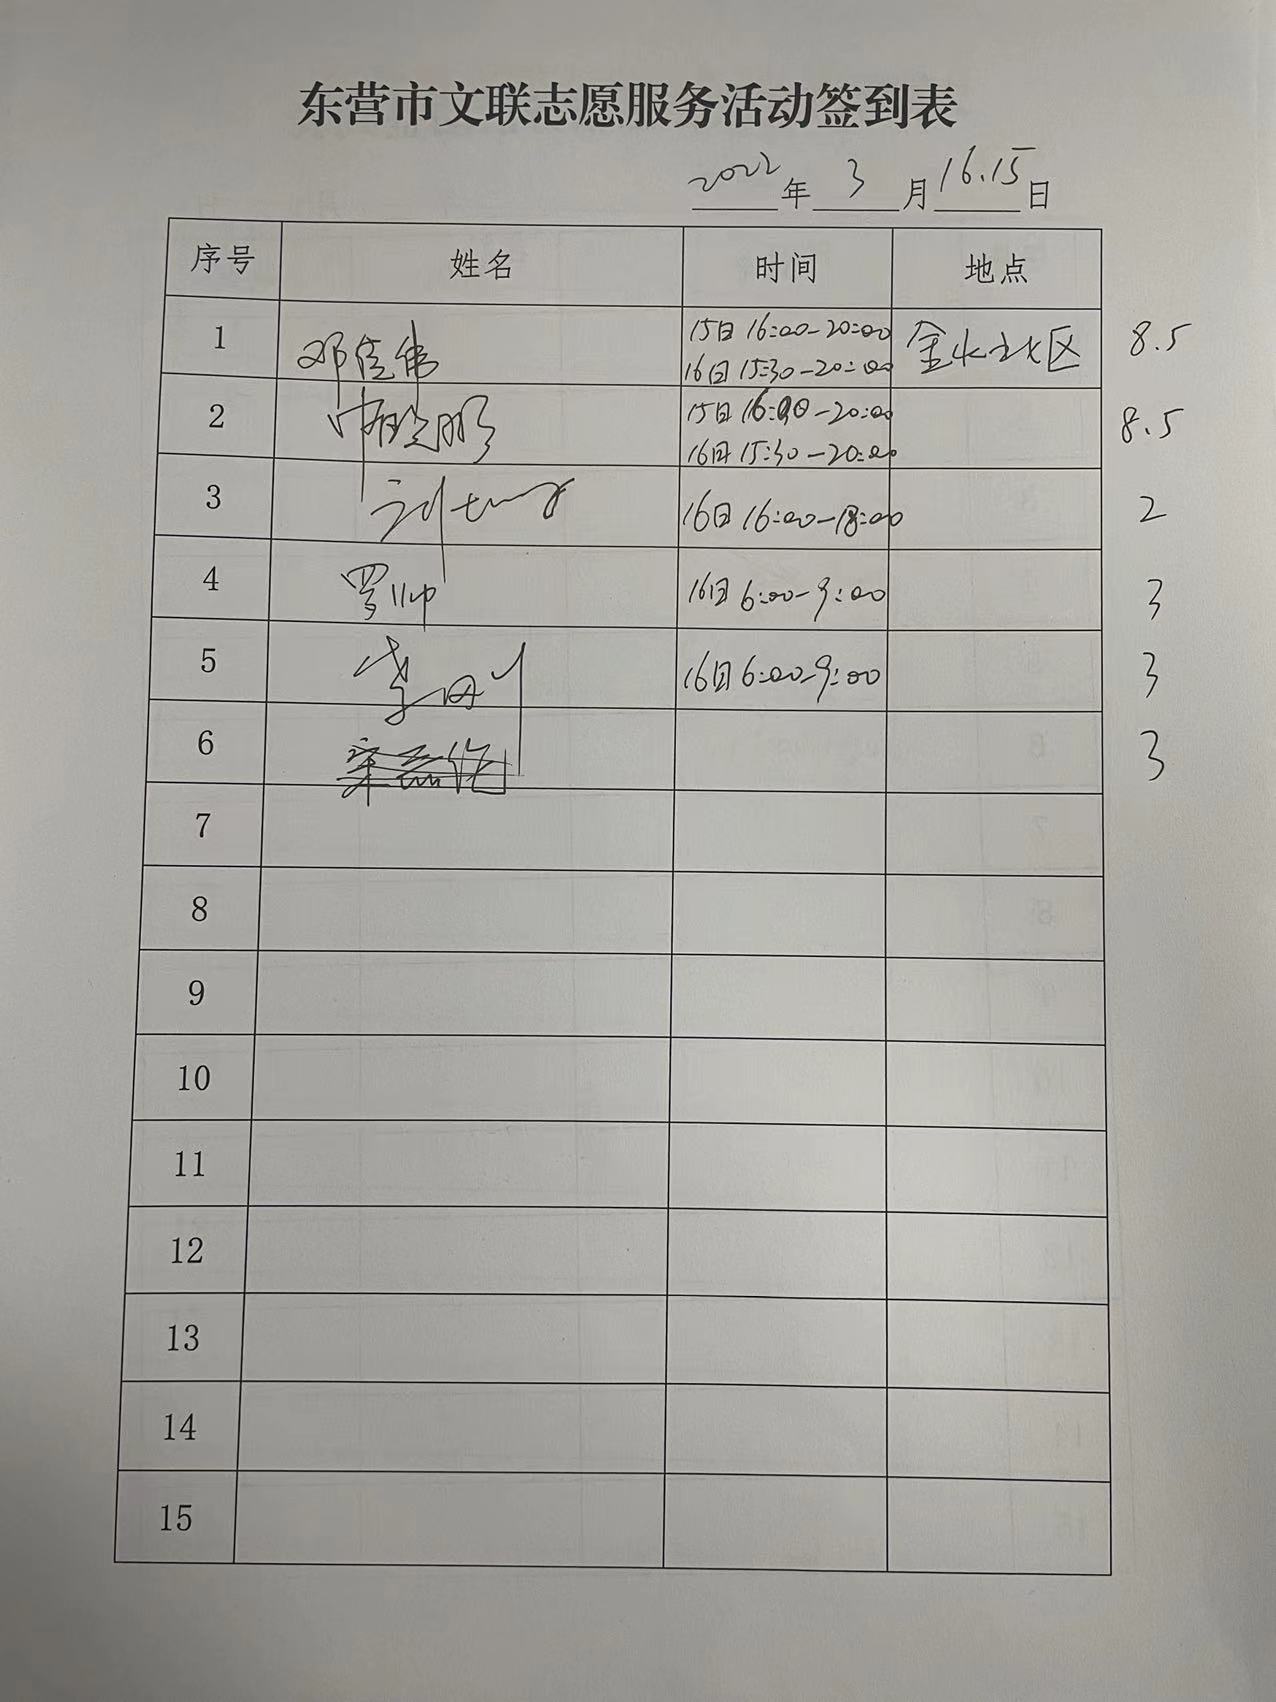 东营市文联志愿服务活动签到表
2022年3月16.15日
序号 姓名 时间 地点
1 邓佳伟 15日16:00-20:00 金水社区 8.5
16日15:30-20:00
2 15日16:00-20:00 8.5
16日15:30-20:00
3 刘 16日16:00-18:00 2
4 罗帅 16日6:00-9:00 3
5 李 16日6:00-9:00 3
6 3
7
8
9
10
11
12
13
14
15